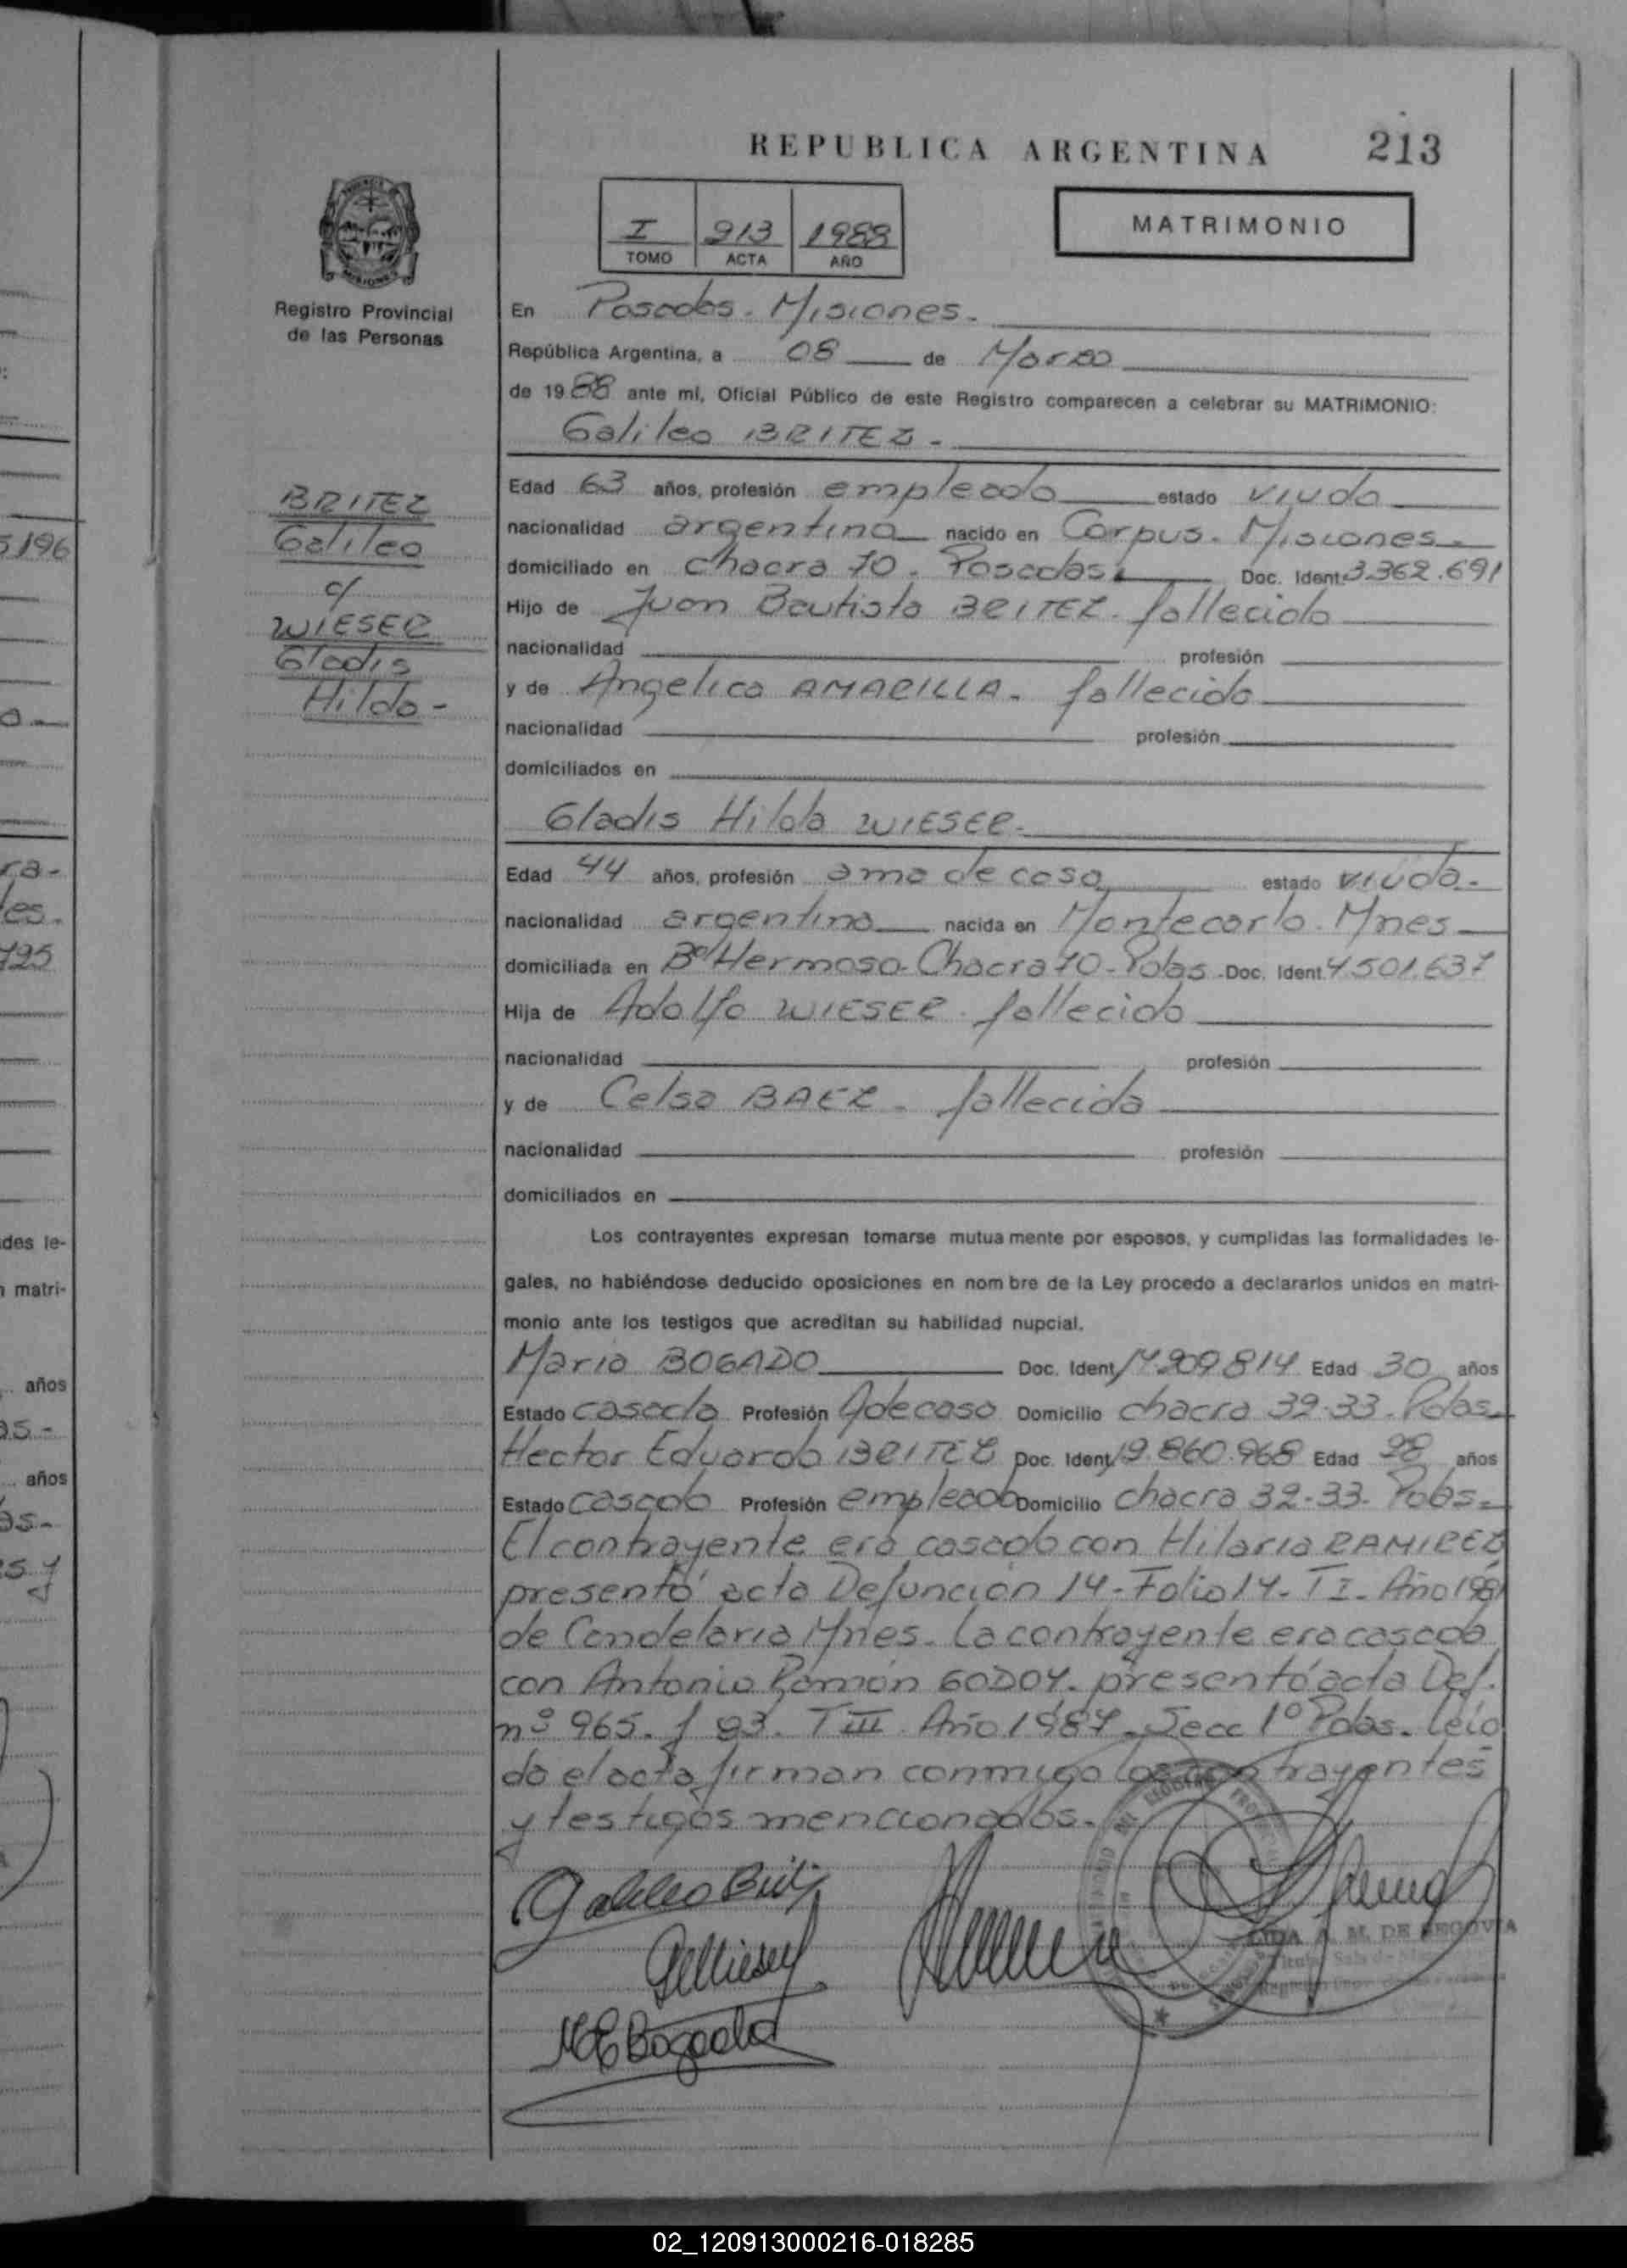 REPUBLICA ARGENTINA 213
I 213 1988
TOMO ACTA AÑO
MATRIMONIO
Registro Provincial
de las Personas
En Posadas - Misiones -
República Argentina, a 08 de Marzo
de 1988 ante mí, Oficial Público de este Registro comparecen a celebrar su MATRIMONIO:
Galileo BRITEZ -
BRITEZ
Galileo
c/
WIESER
Gladis
Hilda -
Edad 63 años, profesión empleado estado viudo
nacionalidad argentina nacido en Corpus - Misiones -
domiciliado en chacra 70 - Posadas Doc. Ident. 3.362.691
Hijo de Juan Bautista BRITEZ - fallecido
nacionalidad profesión
y de Angelica AMARILLA - fallecida
nacionalidad profesión
domiciliados en
Gladis Hilda WIESER -
Edad 44 años, profesión ama de casa estado viuda -
nacionalidad argentina nacida en Montecarlo - Mnes
domiciliada en Bº Hermoso - Chacra 70 - Pdas - Doc. Ident. 4.501.637
Hija de Adolfo WIESER - fallecido
nacionalidad profesión
y de Celsa BAEZ - fallecida
nacionalidad profesión
domiciliados en
Los contrayentes expresan tomarse mutuamente por esposos, y cumplidas las formalidades le-
gales, no habiéndose deducido oposiciones en nombre de la Ley procedo a declararlos unidos en matri-
monio ante los testigos que acreditan su habilidad nupcial.
Maria BOGADO Doc. Ident. 14.209.814 Edad 30 años
Estado casada Profesión A de casa Domicilio chacra 32-33 - Pdas -
Hector Eduardo BRITEZ Doc. Ident. 13.860.968 Edad 28 años
Estado casado Profesión empleado Domicilio chacra 32-33 - Pdas -
El contrayente era casado con Hilaria RAMIREZ
presentó acta Defunción 14 - Folio 14 - T I - Año
de Candelaria Mnes - La contrayente era casada
con Antonio Ramón GODOY - presentó acta Def.
nº 965 - f 93 - T III - Año 1987 - Secc 1º Pdas - Leí
da el acta firman conmigo los contrayentes
y testigos mencionados -
Galileo Britez
GWieser
MEBogado
LYDA A. M. DE SEGOVIA
5196
ra-
les.
795
des le-
matri-
años
as -
años
as -
s y
02_120913000216-018285